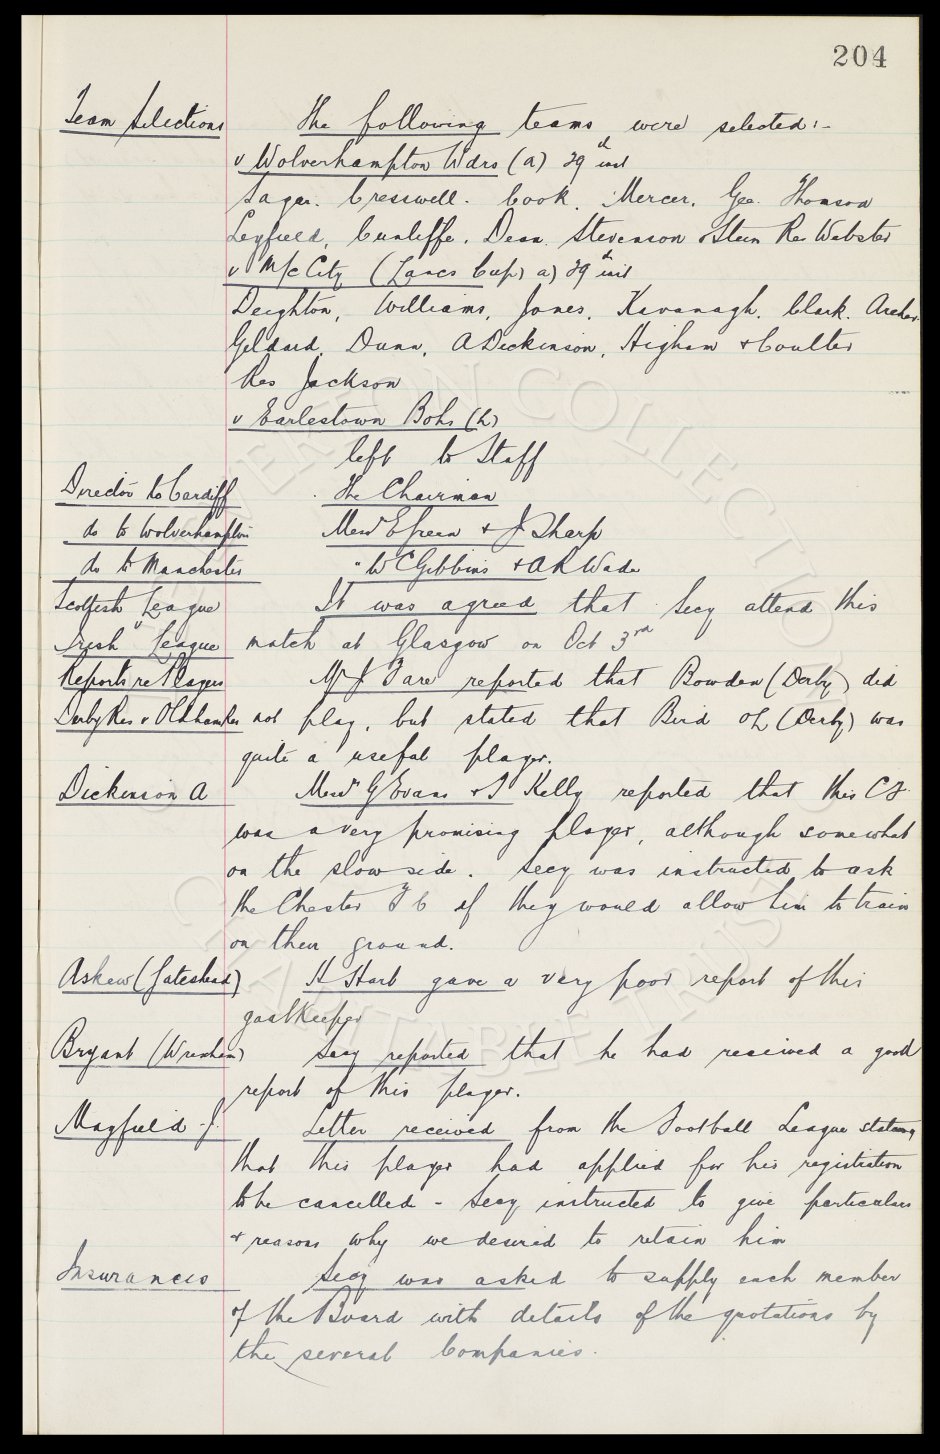 204
Team Selections The following teams were selected:-
v Wolverhampton Wdrs (a) 29th inst
Sagar. Cresswell. Cook. Mercer. Geo. Thomson
Leyfield, Cunliffe, Dean. Stevenson & Stein Res Webster
v M/c City (Lancs Cup) a) 29th inst
Deighton, Williams, Jones, Kavanagh. Clark. Archer.
Geldard, Dunn, A Dickinson, Higham & Coulter
Res Jackson
v Earlestown Bohs (h)
left to Staff
Director to Cardiff The Chairman
do to Wolverhampton Messrs E Green & J Sharp
do to Manchester " W C Gibbins & A R Wade
Scottish League It was agreed that Secy attend this
Irish League match at Glasgow on Oct 3rd
Reports re Players Mr J Fare reported that Bowden (Derby) did
Derby Res v Oldham Res not play, but stated that Bird OL (Derby) was
quite a useful player.
Dickinson A Messrs G Evans & T Kelly reported that this CF
was a very promising player, although somewhat
on the slow side. Secy was instructed to ask
the Chester F C if they would allow him to train
on their ground.
Askew (Gateshead) H Hart gave a very poor report of this
goalkeeper
Bryant (Wrexham) Secy reported that he had received a good
report of this player.
Mayfield J. Letter received from the Football League stating
that this player had applied for his registration
to be cancelled - Secy instructed to give particulars
& reasons why we desired to retain him
Insurances Secy was asked to supply each member
of the Board with details of the quotations by
the several Companies.
EVERTON COLLECTION
CHARITABLE TRUST